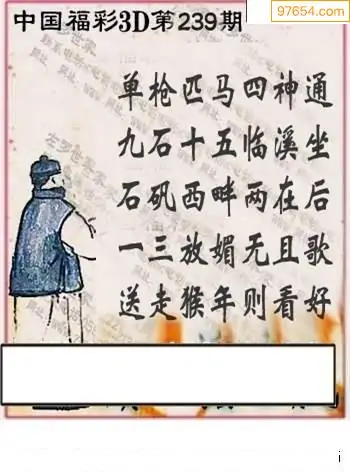 中国福彩3D第239期
97654.com
单枪匹马四神通
九石十五临溪坐
石矶西畔两在后
一三放媚无且歌
送走猴年则看好
i